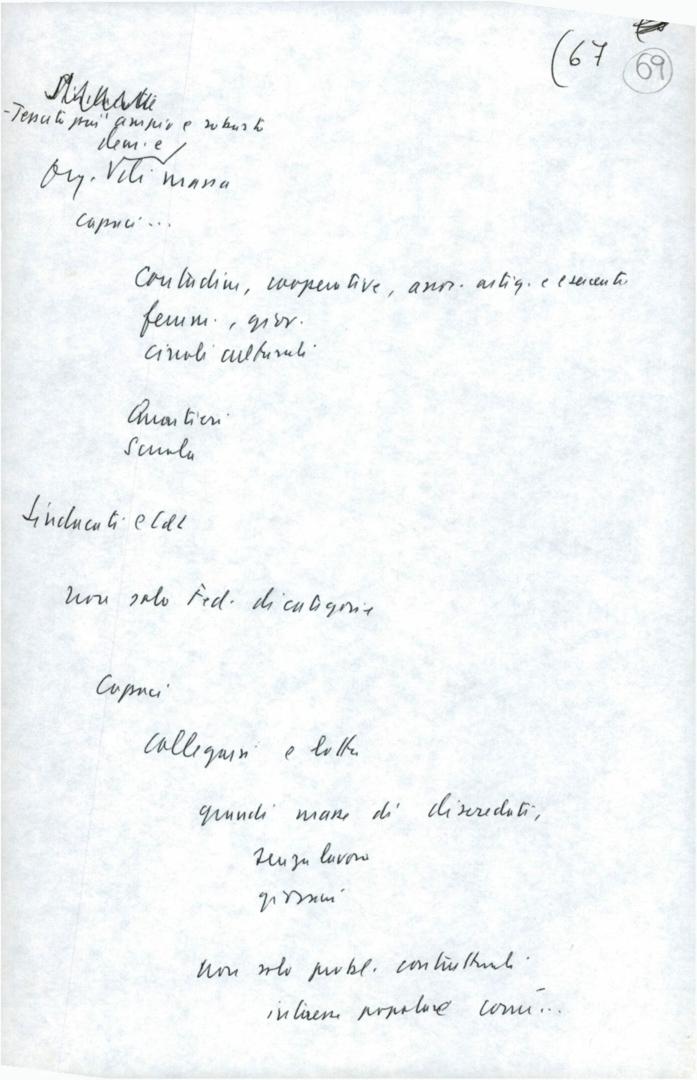 (67 69
-Tessuto più ampio e robusto
dem. e
Org. Vti massa
capaci...
Contadini, cooperative, assoc. artig. e esercenti
femm., giov.
circoli culturali
Quartieri
Scuola
Sindacati e CdL
non solo Fed. di categoria
Capaci
collegarsi e lotta
grandi masse di diseredati,
senza lavoro
giovani
non solo probl. contrattuali
interesse popolare comu...